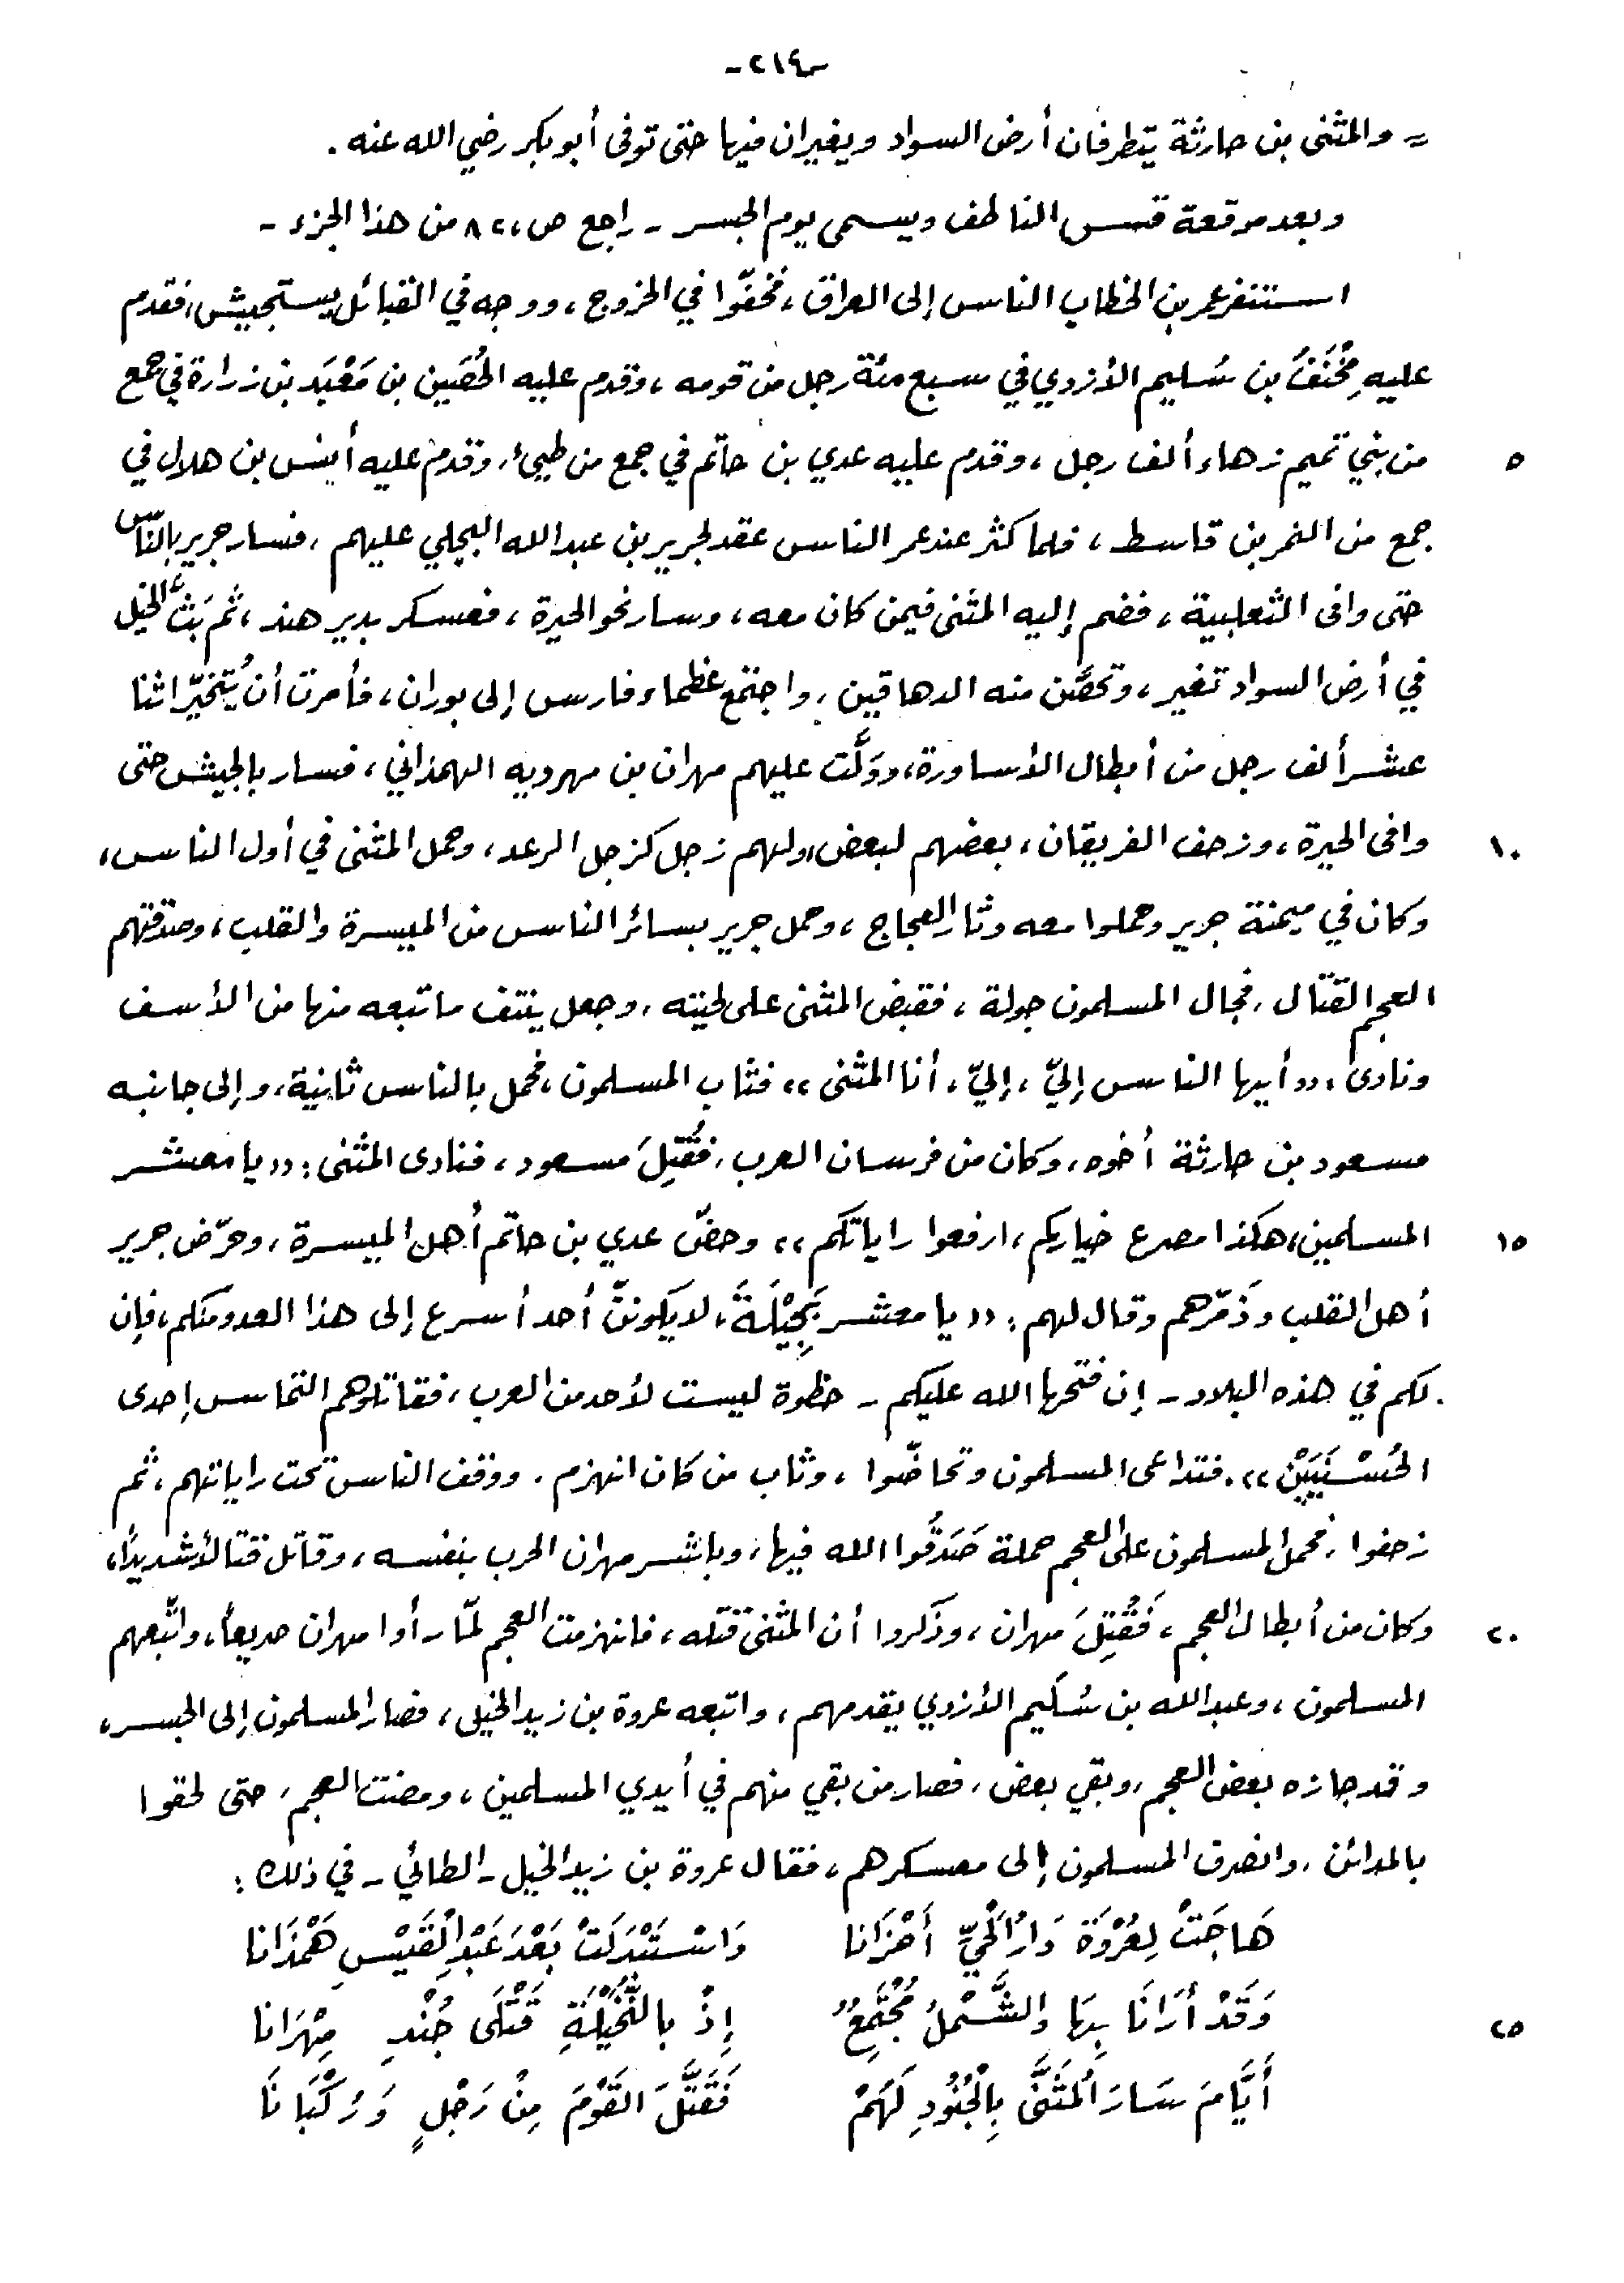 -٢١٤-
= والمثنى بن حارثة يتطرفان أرض السواد ويغيران فيها حتى توفى أبو بكر رضي الله عنه .
وبعد موقعة قسس الناطف ويسمى يوم الجسر - راجع ص ،، ٨٢ من هذا الجزء -
استنفر عمر بن الخطاب الناس إلى العراق ، فخفّوا في الخروج ، ووجه في القبائل يستجيش ، فقدم
عليه مِخْنَفُ بن سُليم الأزدي في سبع مئة رجل من قومه ، وقدم عليه الحُصَين بن مَعْبَد بن زرارة في جمع
٥ من بني تميم زهاء ألف رجل ، وقدم عليه عدي بن حاتم في جمع من طيىء ، وقدم عليه أنس بن هلال في
جمع من النمر بن قاسط ، فلما كثر عند عمر الناس عقد لجرير بن عبد الله البجلي عليهم ، فسار جرير بالنّاس
حتى وافى الثعلبية ، فضم إليه المثنى فيمن كان معه ، وسار نحو الحيرة ، فعسكر بدير هند ، ثم بَثَّ الخيل
في أرض السواد تغير ، وتحصَّن منه الدهاقين ، واجتمع عظماء فارس إلى بوران ، فأمرت أن يُتخيّر اثنا
عشر ألف رجل من أبطال الأساورة ، وولَّت عليهم مهران بن مهرويه الهمذاني ، فسار بالجيش حتى
١٠ وافى الحيرة ، وزحف الفريقان ، بعضهم لبعض ، ولهم زجل كزجل الرعد ، وحمل المثنى في أول الناس ،
وكان في ميمنة جرير وحملوا معه وثار العجاج ، وحمل جرير بسائر الناس من الميسرة والقلب ، وصدقتهم
العجم القتال ، فجال المسلمون جولة ، فقبض المثنى على لحيته ، وجعل ينتف ما تبعه منها من الأسف
ونادى ، (( أيها الناس إليّ ، إليّ ، أنا المثنى ،، فثاب المسلمون ، فحمل بالناس ثانية ، وإلى جانبه
مسعود بن حارثة أخوه ، وكان من فرسان العرب ، فقُتِلَ مسعود ، فنادى المثنى : (( يا معشر
١٥ المسلمين ، هكذا مصرع خياركم ، ارفعوا راياتكم ،، وحضّ عدي بن حاتم أهل الميسرة ، وحرّض جرير
أهل القلب وذمّرهم وقال لهم : (( يا معشر بَجِيْلَةَ ، لا يكوننّ أحد أسرع إلى هذا العدو منكم ، فإن
لكم في هذه البلاد - إن فتحها الله عليكم - حظوة ليست لأحد من العرب ، فقاتلوهم التماس إحدى
الحُسْنَيَيْن ،، . فتداعى المسلمون وتحاضّوا ، وثاب من كان انهزم . ووقف الناس تحت راياتهم ، ثم
زحفوا ، فحمل المسلمون على العجم حملة صَدَقُوا الله فيها ، وباشر مهران الحرب بنفسه ، وقاتل قتالاً شديداً ،
٢٠ وكان من أبطال العجم ، فَقُتِلَ مهران ، وذكروا أن المثنى قتله ، فانهزمت العجم لمّا رأوا مهران صريعاً ، واتّبعهم
المسلمون ، وعبد الله بن سُليم الأزدي يقدمهم ، واتبعه عروة بن زيد الخيل ، فصار المسلمون إلى الجسر ،
وقد جازه بعض العجم ، وبقي بعض ، فصار من بقي منهم في أيدي المسلمين ، ومضت العجم ، حتى لحقوا
بالمدائن ، وانصرف المسلمون إلى معسكرهم ، فقال عروة بن زيد الخيل - الطائي - في ذلك :
هَاجَتْ لِعُرْوَةَ دَارُ الْحَيِّ أَحْزَانا وَاسْتَبْدَلَتْ بَعْدَ عَبْدِ الْقَيْسِ هَمْدَانا
٢٥ وَقَدْ أرَانَا بِهَا وَالشَّمْلُ مُجْتَمِعٌ إِذْ بِالنُّخَيْلَةِ قَتْلَى جُنْدِ مِهْرَانا
أيَّامَ سَارَ الْمُثَنَّى بِالْجُنُودِ لَهُمْ فَقَتَّلَ الْقَوْمَ مِنْ رَجْلٍ وَرُكْبَانَا